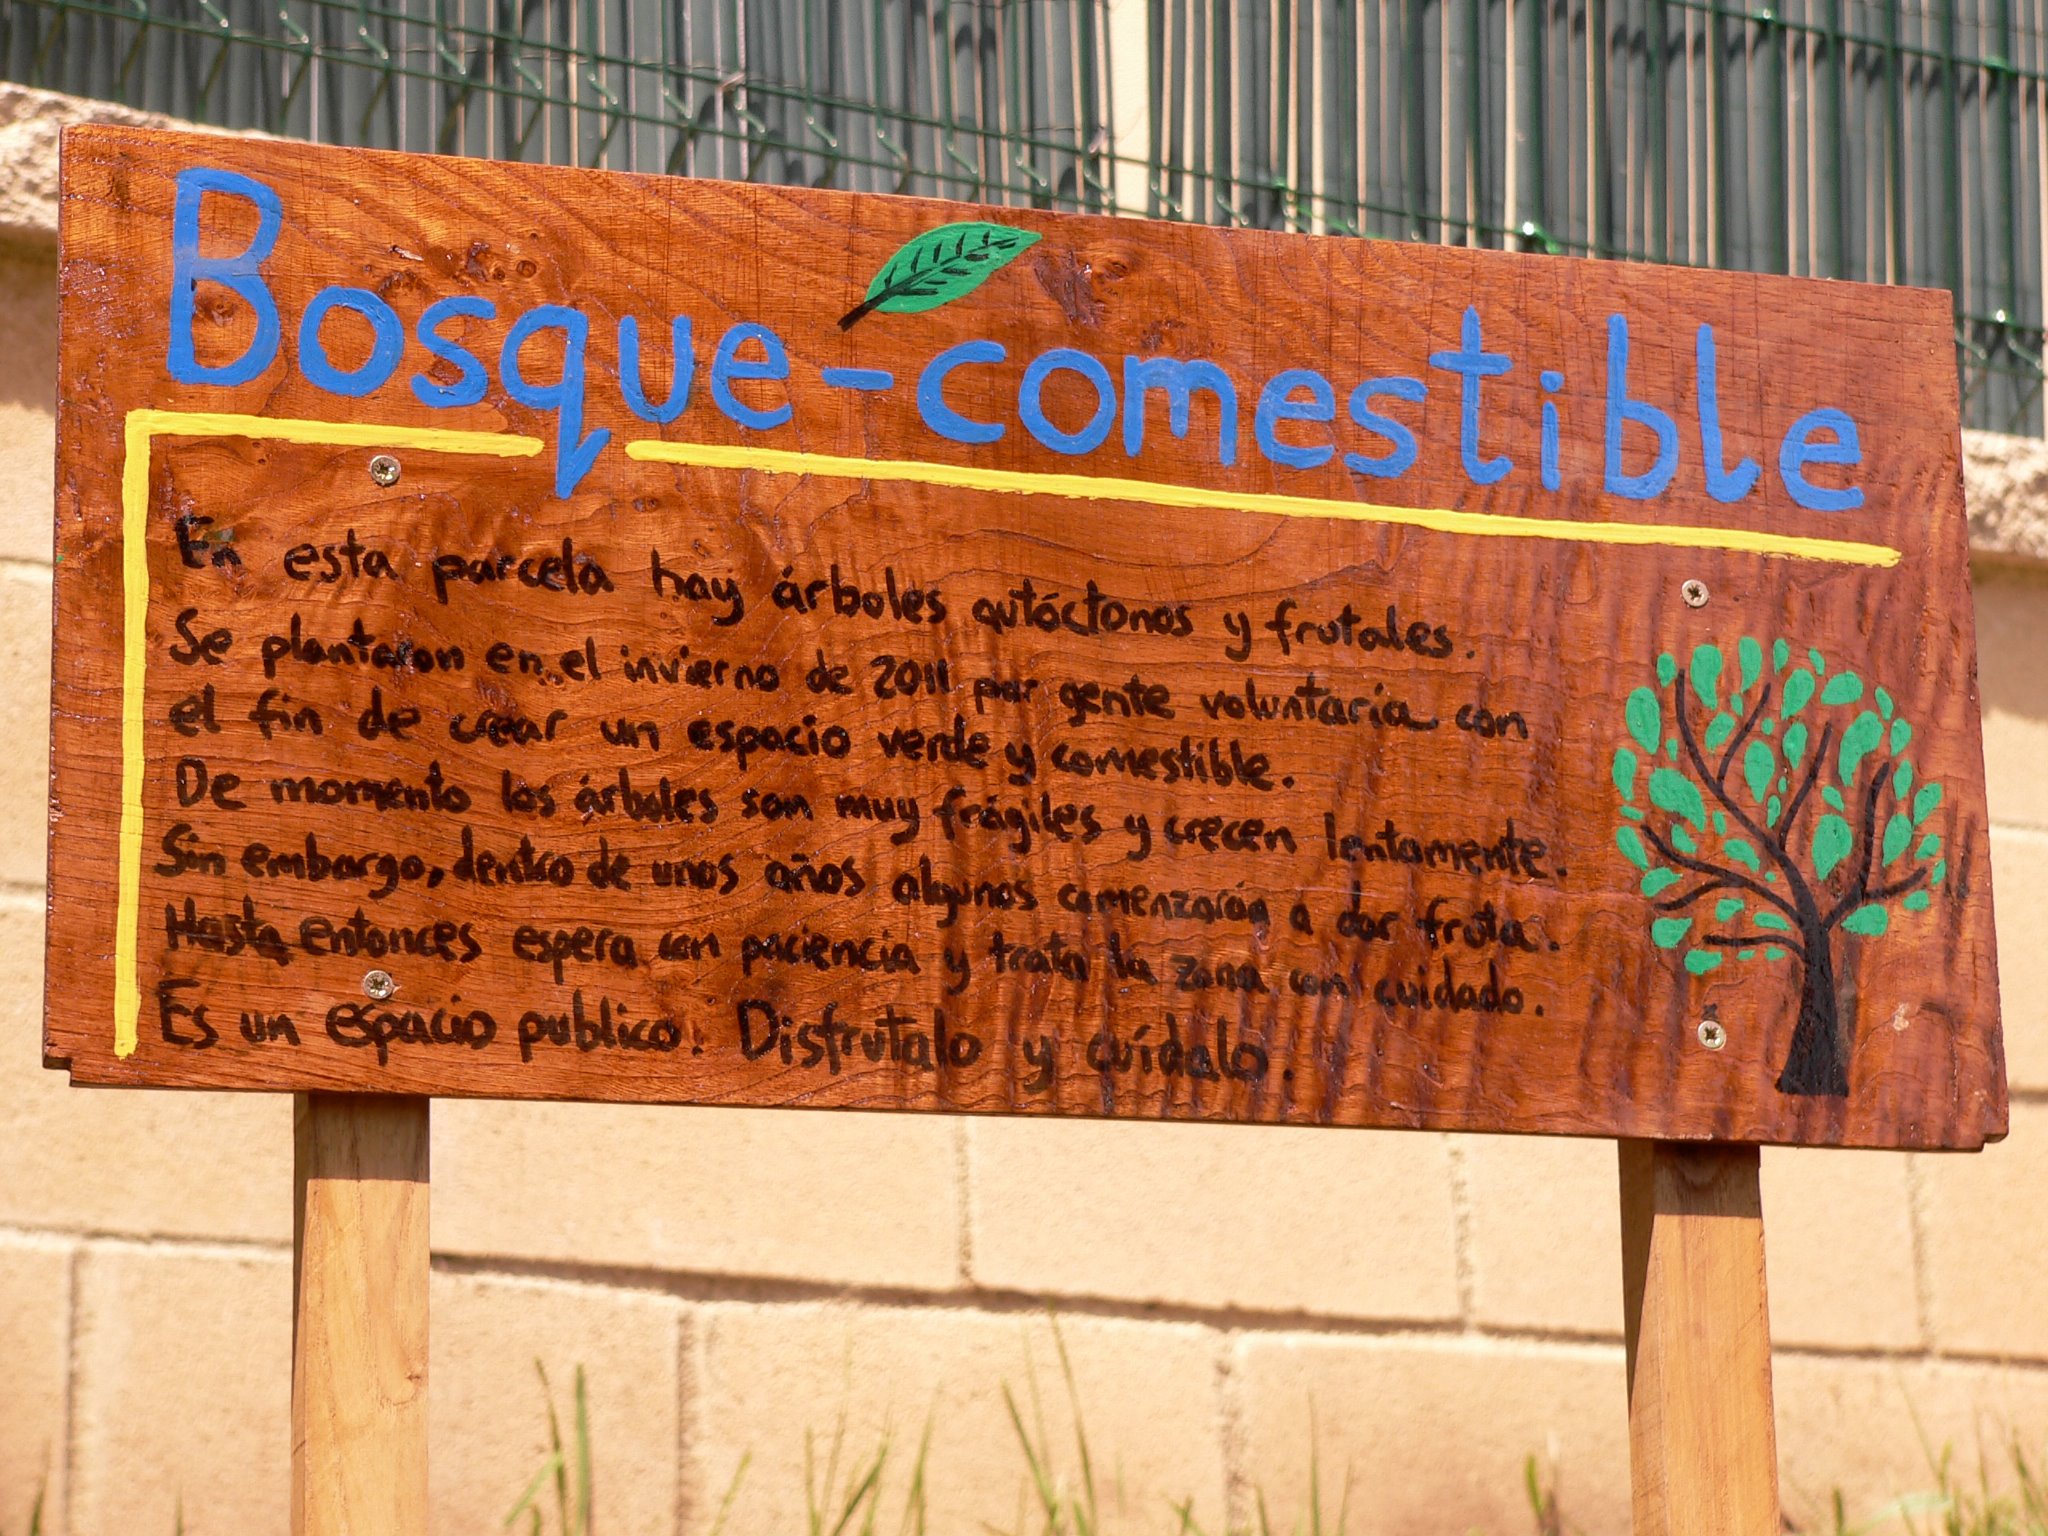 Bosque-comestible
En esta parcela hay árboles autóctonos y frutales.
Se plantaron en el invierno de 2011 por gente voluntaria con
el fin de crear un espacio verde y comestible.
De momento los árboles son muy frágiles y crecen lentamente.
Sin embargo, dentro de unos años algunos comenzarán a dar fruta.
Hasta entonces espera con paciencia y trata la zona con cuidado.
Es un espacio publico. Disfrutalo y cuídalo.